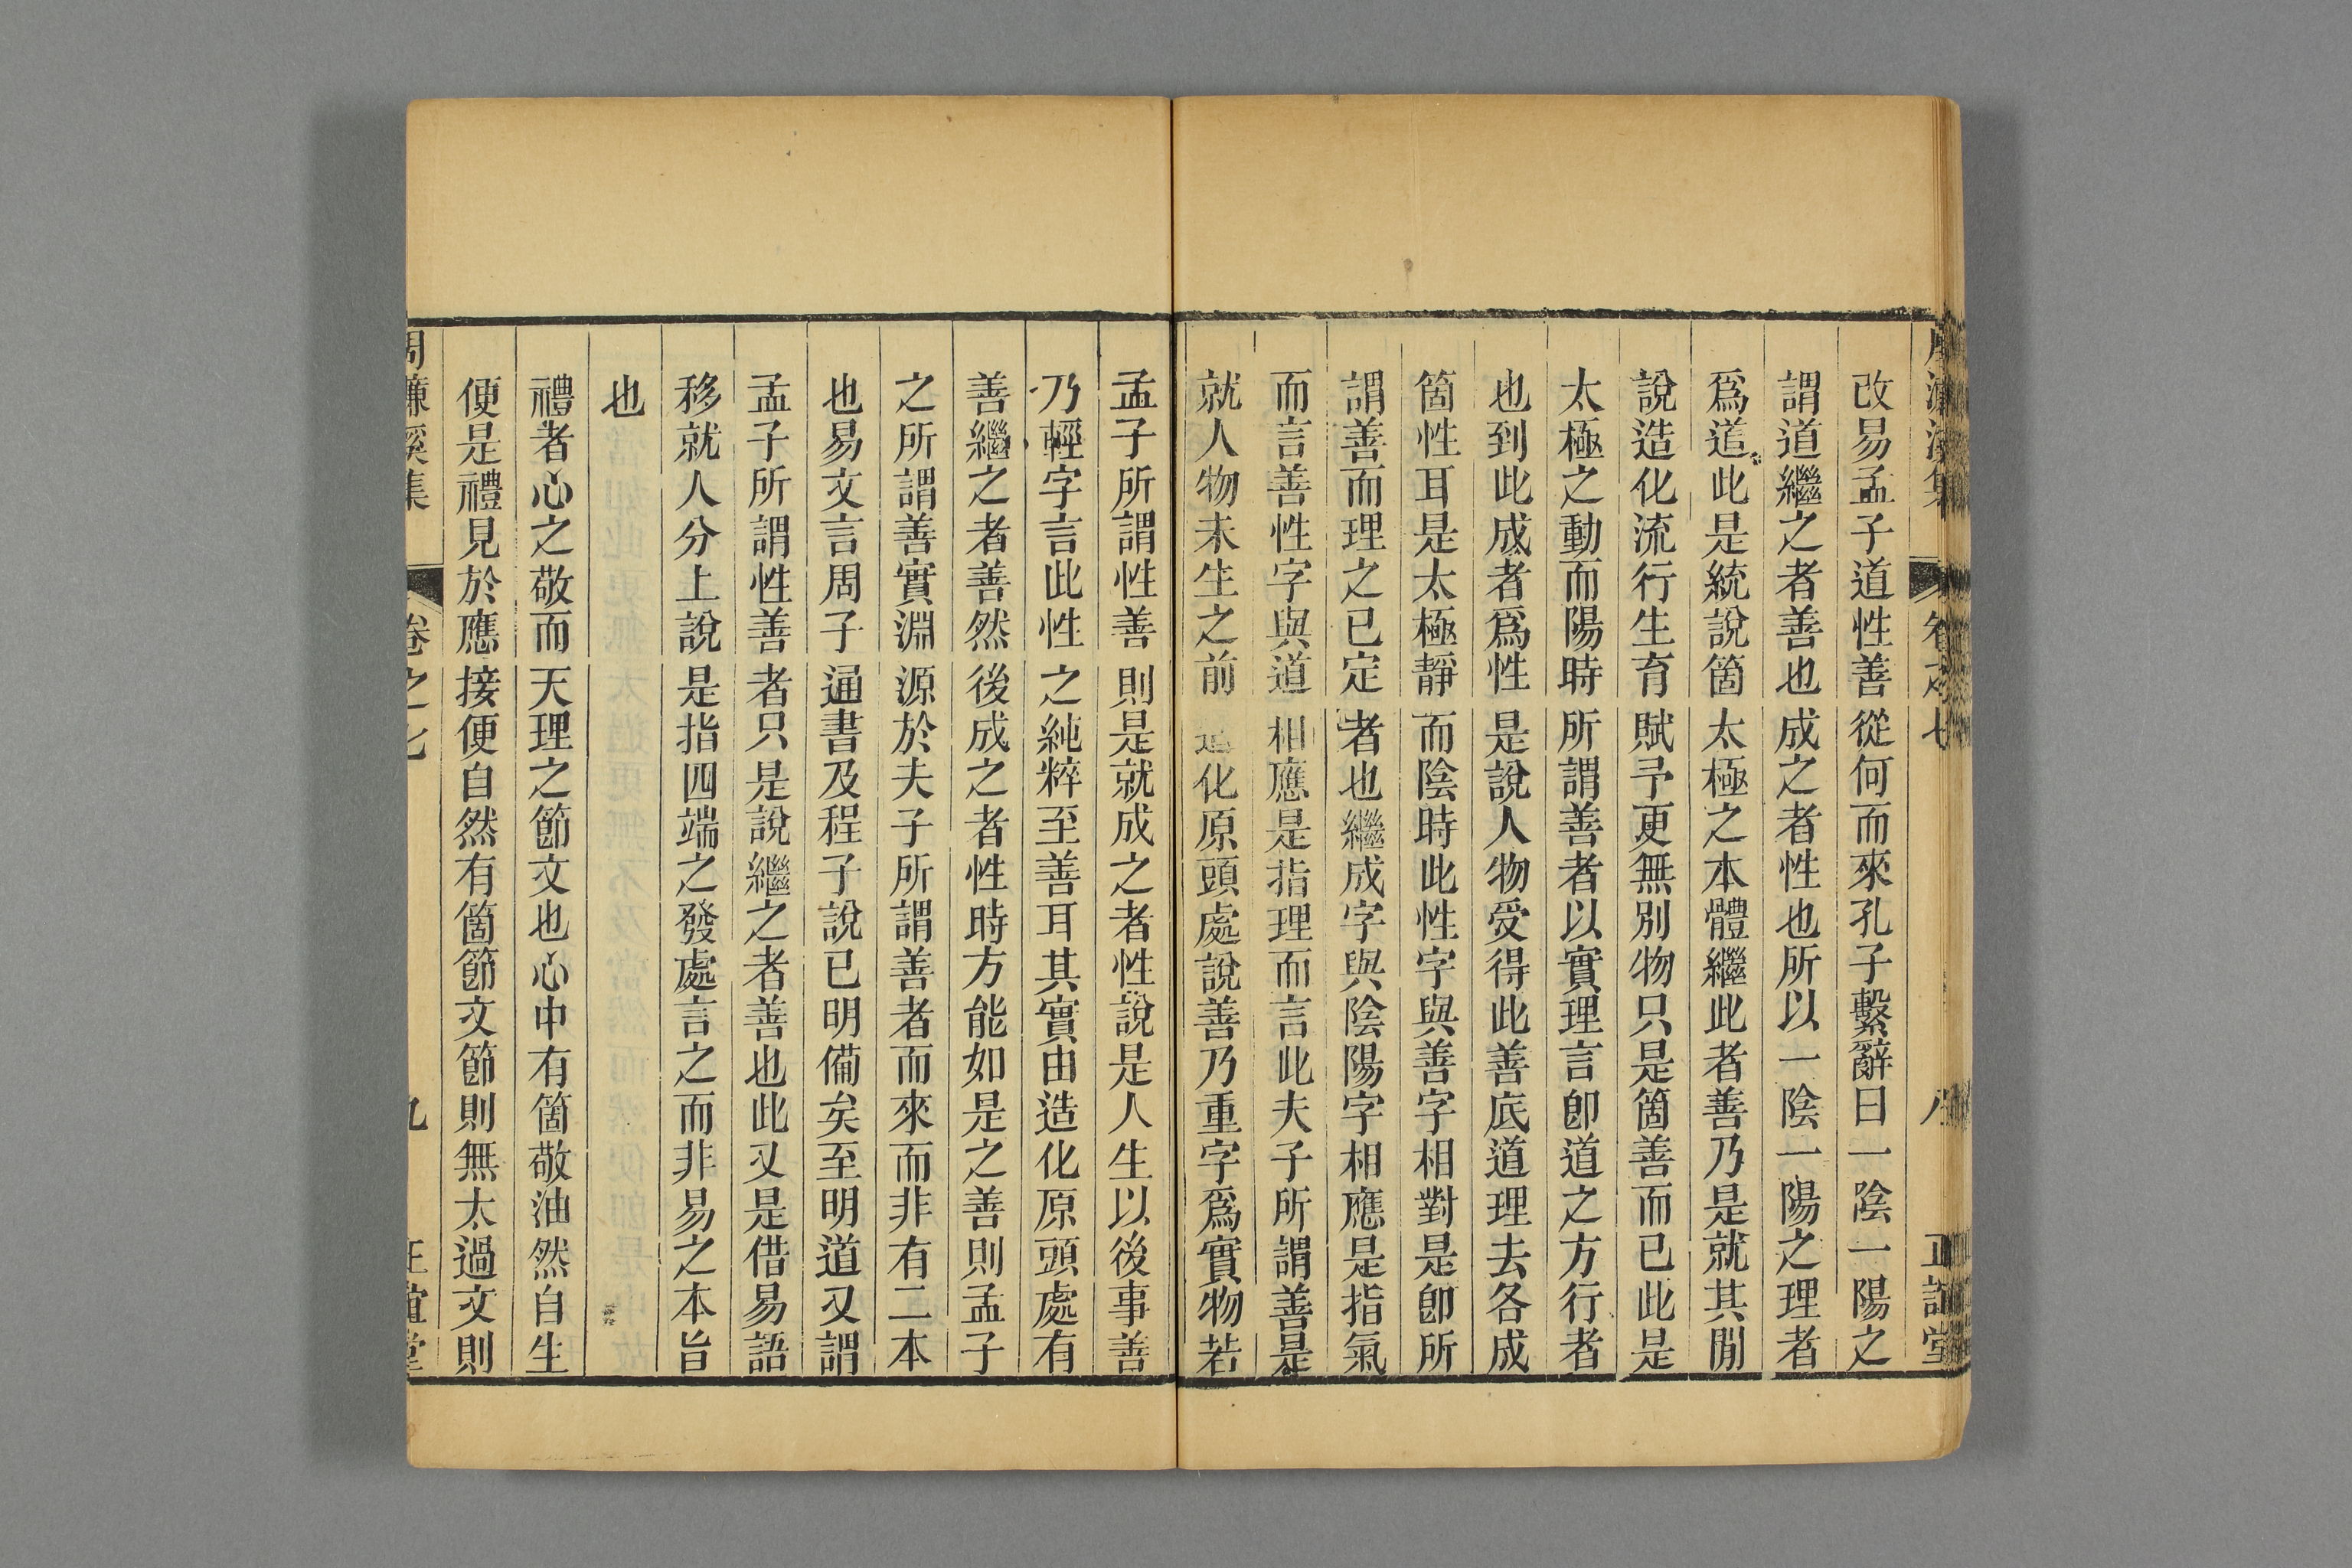 改易孟子道性善從何而來孔子繫辭曰一陰一陽之
謂道繼之者善也成之者性也所以一陰一陽之理者
爲道此是統說箇太極之本體繼此者善乃是就其閒
說造化流行生育賦予更無別物只是箇善而已此是
太極之動而陽時所謂善者以實理言卽道之方行者
也到此成者爲性是說人物受得此善底道理去各成
箇性耳是太極靜而陰時此性字與善字相對是卽所
謂善而理之已定者也繼成字與陰陽字相應是指氣
而言善性字與道相應是指理而言此夫子所謂善是
就人物未生之前造化原頭處說善乃重字爲實物若
孟子所謂性善則是就成之者性說是人生以後事善
乃輕字言此性之純粹至善耳其實由造化原頭處有
善繼之者善然後成之者性時方能如是之善則孟子
之所謂善實淵源於夫子所謂善者而來而非有二本
也易文言周子通書及程子說已明備矣至明道又謂
孟子所謂性善者只是說繼之者善也此又是借易語
移就人分上說是指四端之發處言之而非易之本旨
也
禮者心之敬而天理之節文也心中有箇敬油然自生
便是禮見於應接便自然有箇節文節則無太過文則
周濂溪集 卷之七 九 正誼堂